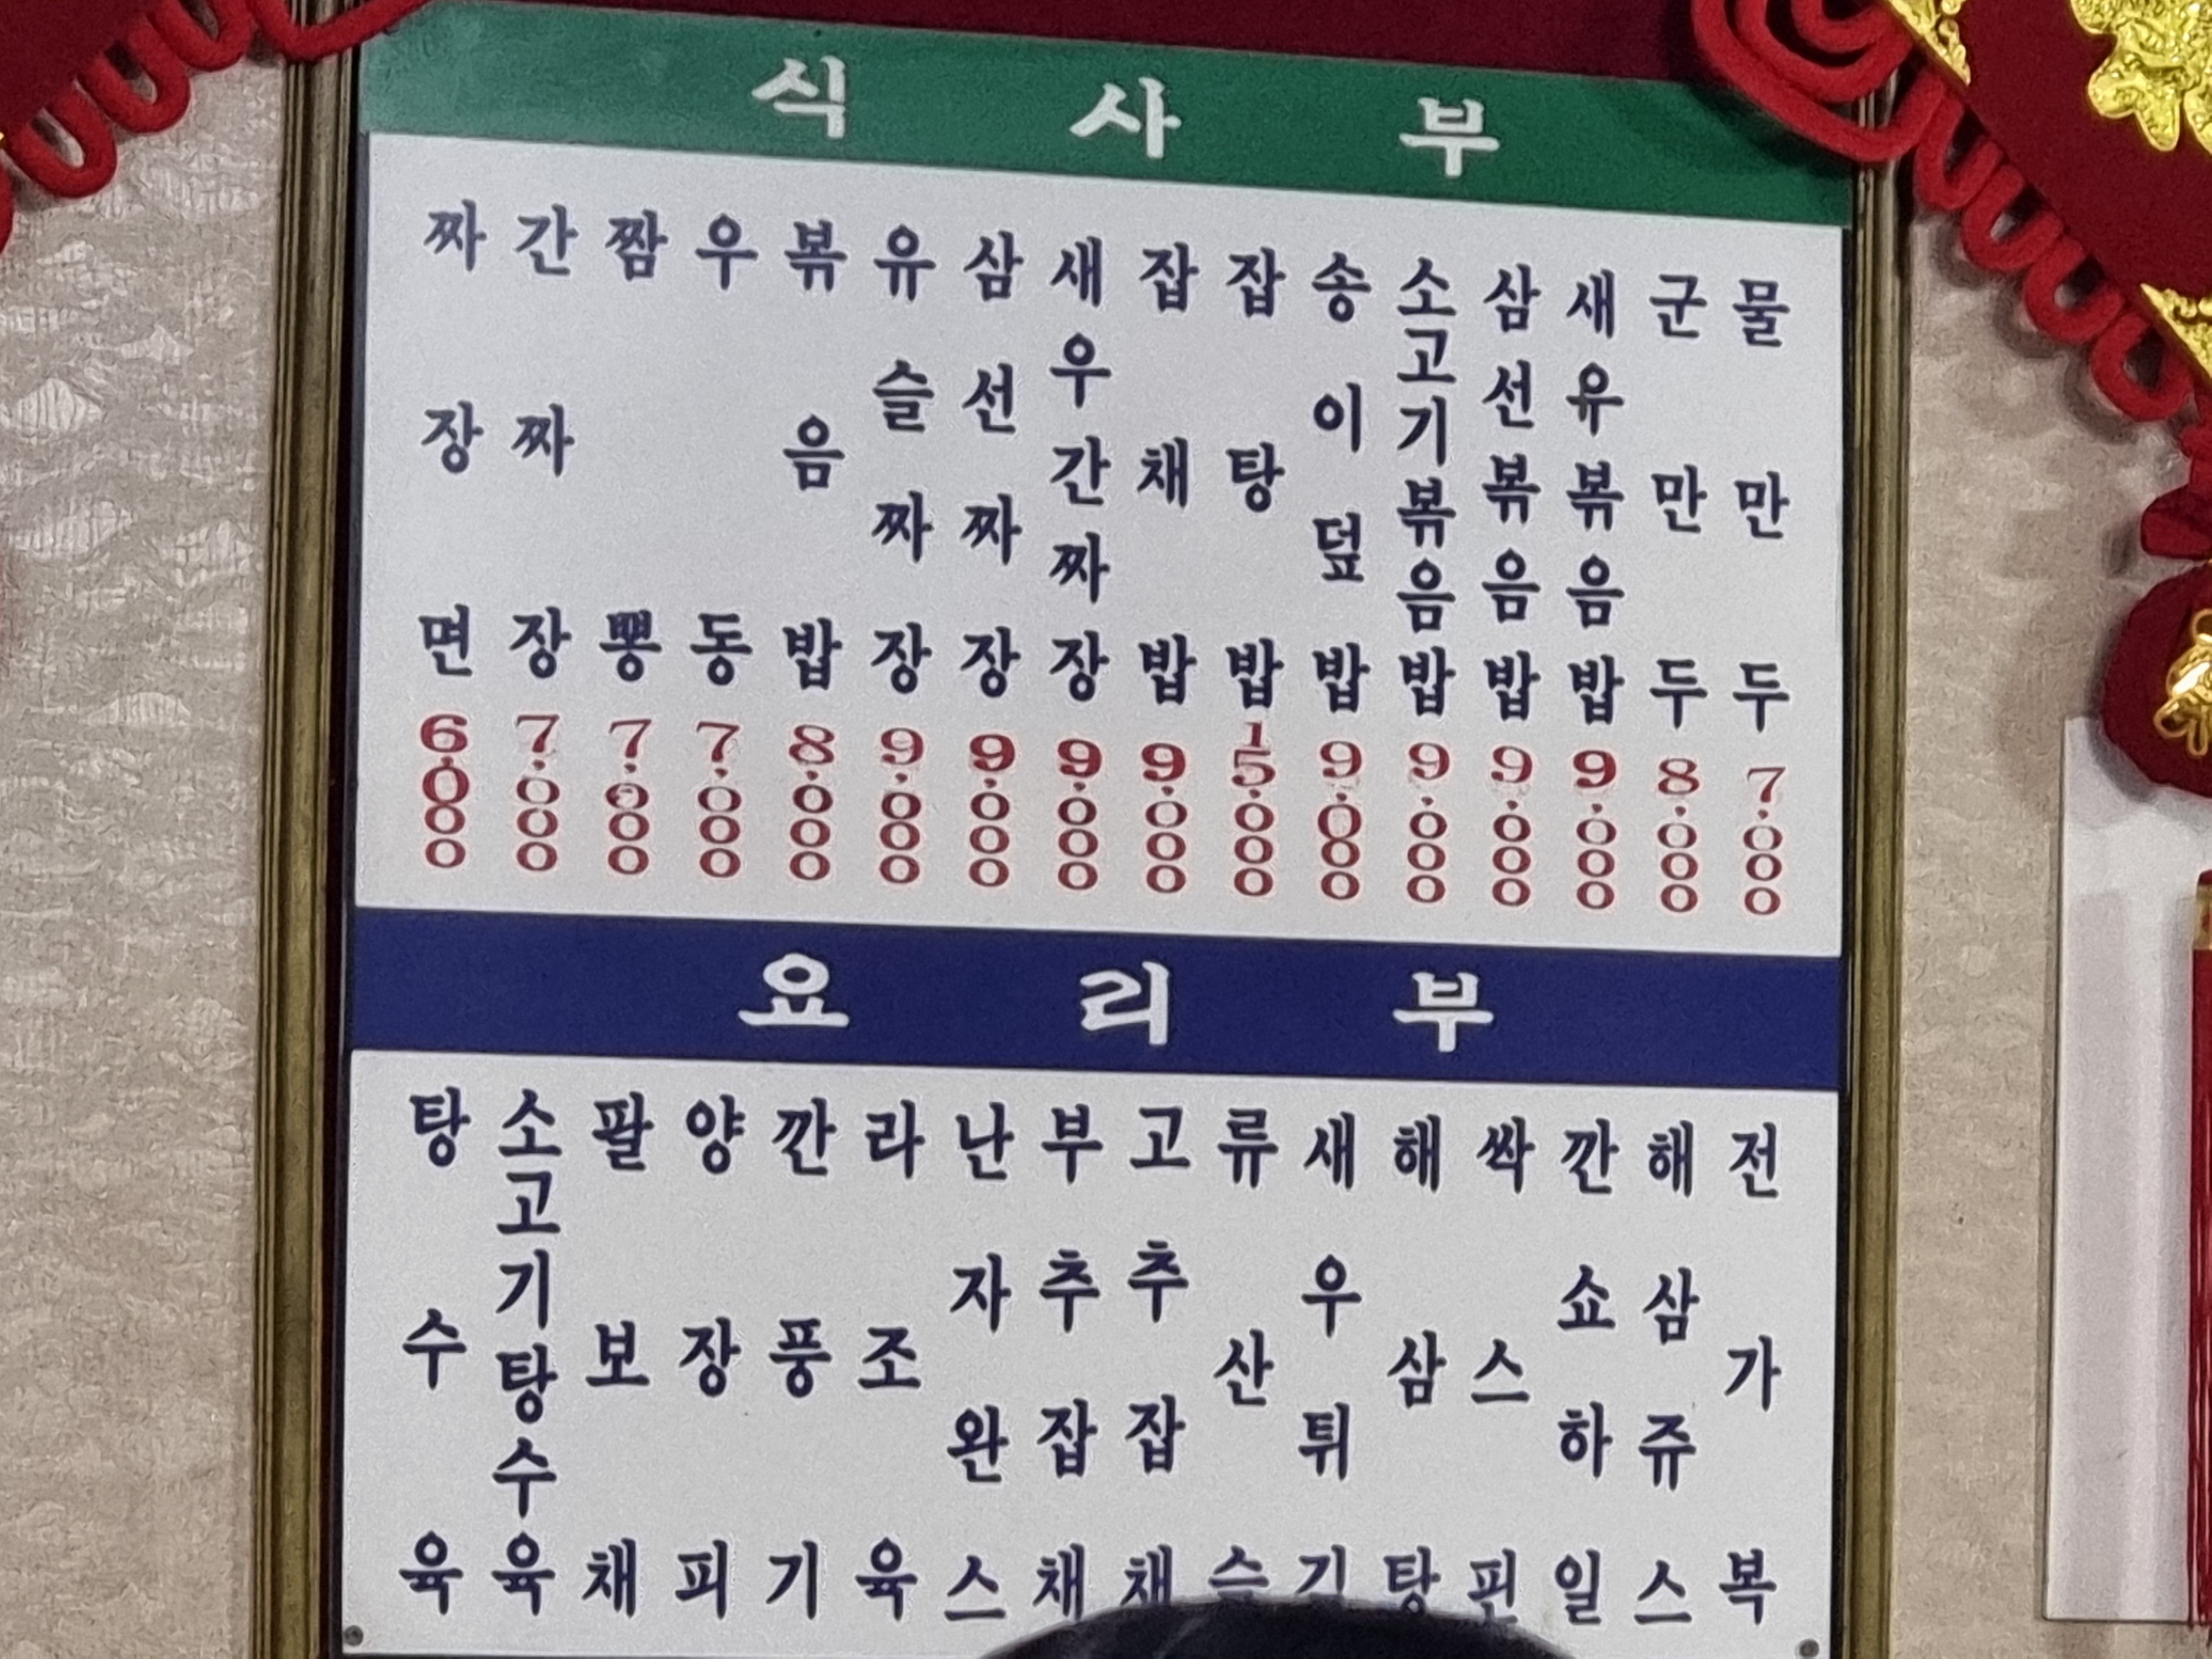 식사부
짜장면 6.000
간짜장 7.000
짬뽕 7.000
우동 7.000
볶음밥 8.000
유슬짜장 9.000
삼선짜장 9.000
새우간짜장 9.000
잡채밥 9.000
잡탕밥 15.000
송이덮밥 9.000
소고기볶음밥 9.000
삼선볶음밥 9.000
새우볶음밥 9.000
군만두 8.000
물만두 7.000
요리부
탕수육
소고기탕수육
팔보채
양장피
깐풍기
라조육
난자완스
부추잡채
고추잡채
류산슬
새우튀김
해삼탕
싹스핀
깐쇼하일
해삼쥬스
전가복